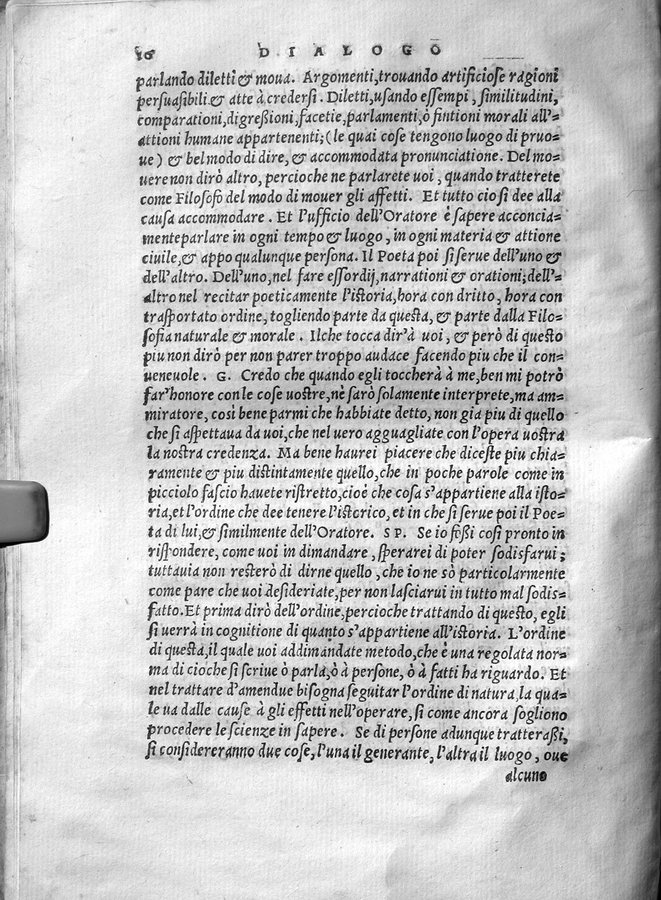 16 DIALOGO
parlando diletti & moua. Argomenti, trouando artificiose ragioni
persuasibili & atte à credersi. Diletti, usando essempi, similitudini,
comparationi, digreßioni, facetie, parlamenti, ò fintioni morali all'=
attioni humane appartenenti; (le quai cose tengono luogo di pruo=
ue) & bel modo di dire, & accommodata pronunciatione. Del mo=
uere non dirò altro, percioche ne parlarete uoi, quando tratterete
come Filosofo del modo di mouer gli affetti. Et tutto cio si dee alla
causa accommodare. Et l'ufficio dell'Oratore è sapere acconcia=
mente parlare in ogni tempo & luogo, in ogni materia & attione
ciuile, & appo qualunque persona. Il Poeta poi si serue dell'uno &
dell'altro. Dell'uno, nel fare essordij, narrationi & orationi; dell'=
altro nel recitar poeticamente l'istoria, hora con dritto, hora con
trasportato ordine, togliendo parte da questa, & parte dalla Filo=
sofia naturale & morale. Ilche tocca dir'à uoi, & però di questo
piu non dirò per non parer troppo audace facendo piu che il con=
ueneuole. G. Credo che quando egli toccherà à me, ben mi potrò
far'honore con le cose uostre, nè sarò solamente interprete, ma am=
miratore, cosi bene parmi che habbiate detto, non gia piu di quello
che si aspettaua da uoi, che nel uero agguagliate con l'opera uostra
la nostra credenza. Ma bene haurei piacere che diceste piu chia=
ramente & piu distintamente quello, che in poche parole come in
picciolo fascio hauete ristretto, cioè che cosa s'appartiene alla isto=
ria, et l'ordine che dee tenere l'istorico, et in che si serue poi il Poe=
ta di lui, & similmente dell'Oratore. SP. Se io foßi cosi pronto in
rispondere, come uoi in dimandare, sperarei di poter sodisfarui;
tuttauia non resterò di dirne quello, che io ne sò particolarmente
come pare che uoi desideriate, per non lasciarui in tutto mal sodis=
fatto. Et prima dirò dell'ordine, percioche trattando di questo, egli
si uerrà in cognitione di quanto s'appartiene all'istoria. L'ordine
di questa, il quale uoi addimandate metodo, che è una regolata nor=
ma di cioche si scriue ò parla, ò à persone, ò à fatti ha riguardo. Et
nel trattare d'amendue bisogna seguitar l'ordine di natura, la qua=
le ua dalle cause à gli effetti nell'operare, si come ancora sogliono
procedere le scienze in sapere. Se di persone adunque tratteraßi,
si considereranno due cose, l'una il generante, l'altra il luogo, oue
alcuno